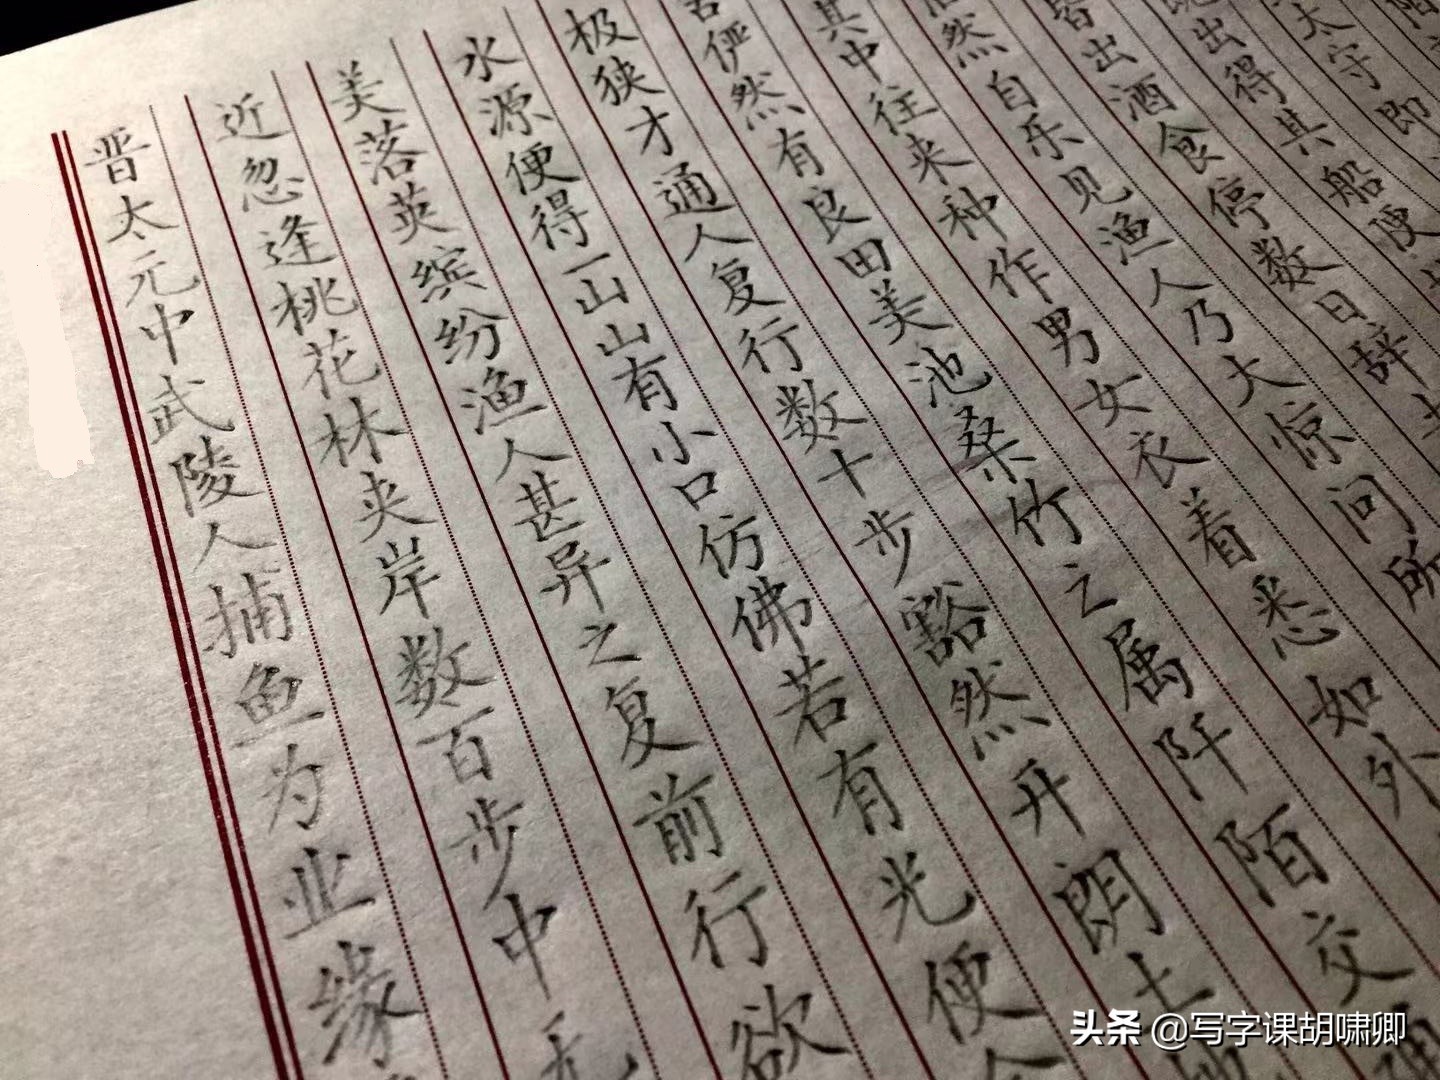 晋太元中武陵人捕鱼为业缘
近忽逢桃花林夹岸数百步中无
美落英缤纷渔人甚异之复前行欲
水源便得一山山有小口仿佛若有光便
极狭才通人复行数十步豁然开朗土
俨然有良田美池桑竹之属阡陌交
其中往来种作男女衣着悉如外
然自乐见渔人乃大惊问所
皆出酒食停数日辞
出得其船便
太守即
头条 @写字课胡啸卿